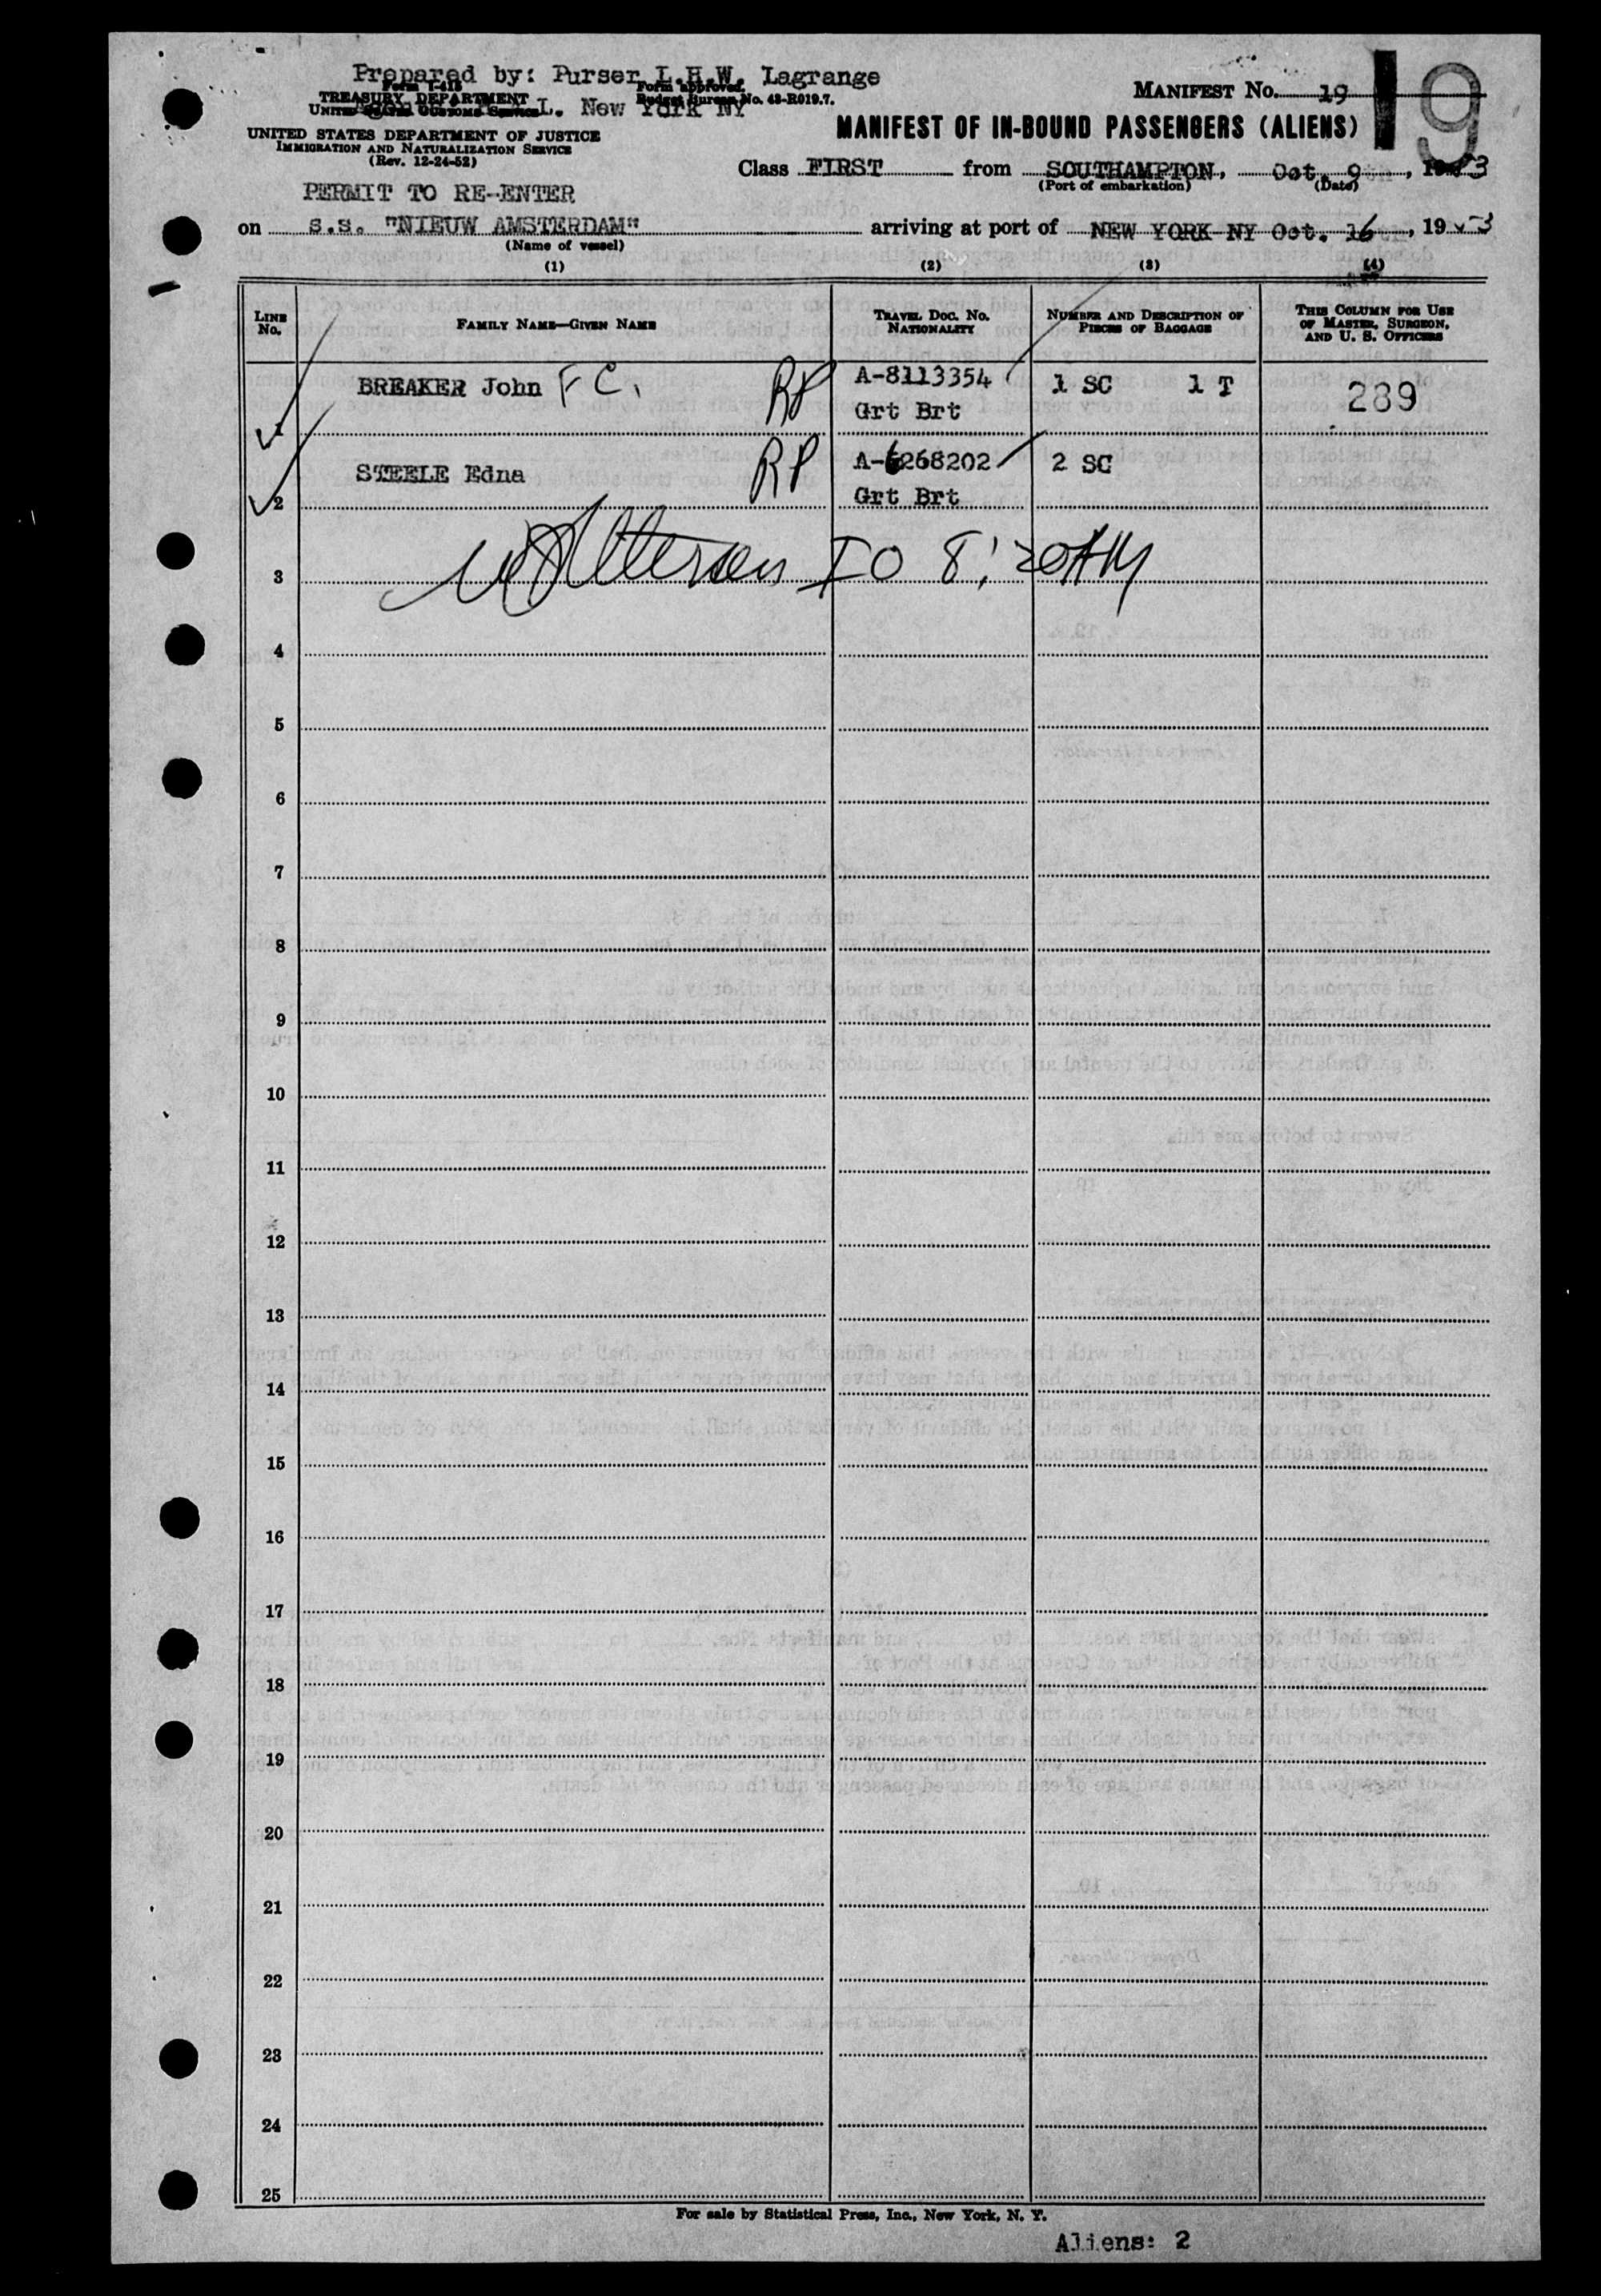 Prepared by: Purser L.H.W. Lagrange
Form I-418
TREASURY DEPARTMENT
UNITED STATES CUSTOMS SERVICE
Form approved.
Budget Bureau No. 43-R019.7.
L. New York NY
UNITED STATES DEPARTMENT OF JUSTICE
IMMIGRATION AND NATURALIZATION SERVICE
(Rev. 12-24-52)
MANIFEST NO. 19
19
MANIFEST OF IN-BOUND PASSENGERS (ALIENS)
Class FIRST from SOUTHAMPTON, Oct. 9th, 1953
(Port of embarkation) (Date)
PERMIT TO RE-ENTER
on s.s. "NIEUW AMSTERDAM" arriving at port of NEW YORK NY Oct. 16, 1953
(Name of vessel)
(1) (2) (3) (4)
LINE No. FAMILY NAME—GIVEN NAME TRAVEL DOC. NO. NATIONALITY NUMBER AND DESCRIPTION OF PIECES OF BAGGAGE THIS COLUMN FOR USE OF MASTER, SURGEON, AND U. S. OFFICERS
1 BREAKER John F C. RP A-8113354 1 SC 1 T 289
Grt Brt
2 STEELE Edna RP A-6268202 2 SC
Grt Brt
3 IO 8:20AM
4
5
6
7
8
9
10
11
12
13
14
15
16
17
18
19
20
21
22
23
24
25
For sale by Statistical Press, Inc., New York, N. Y.
Aliens: 2